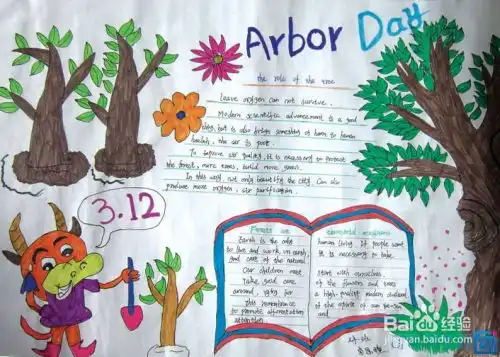 Arbor Day
the role of the tree
Leave oxygen can not survive.
Modern scientific advancement is a good
thing, but is also brings something of harm to human
health, the air is poor.
To improve air quality, it is necessary to protect
the forest, more trees, build more green.
In this way, not only beautify the city, Can also
produce more oxygen, air purification.
3.12
Forests are
Earth is the only
to live and work on earth
and care of the natural
Our children must
take good care
around,
this
to promote
attention
human living. If people want
it is necessary to take
start with ourselves.
of the flowers and trees
a high quality modern student
of the spirit of our
and
Baidu经验
jingyan.baidu.com